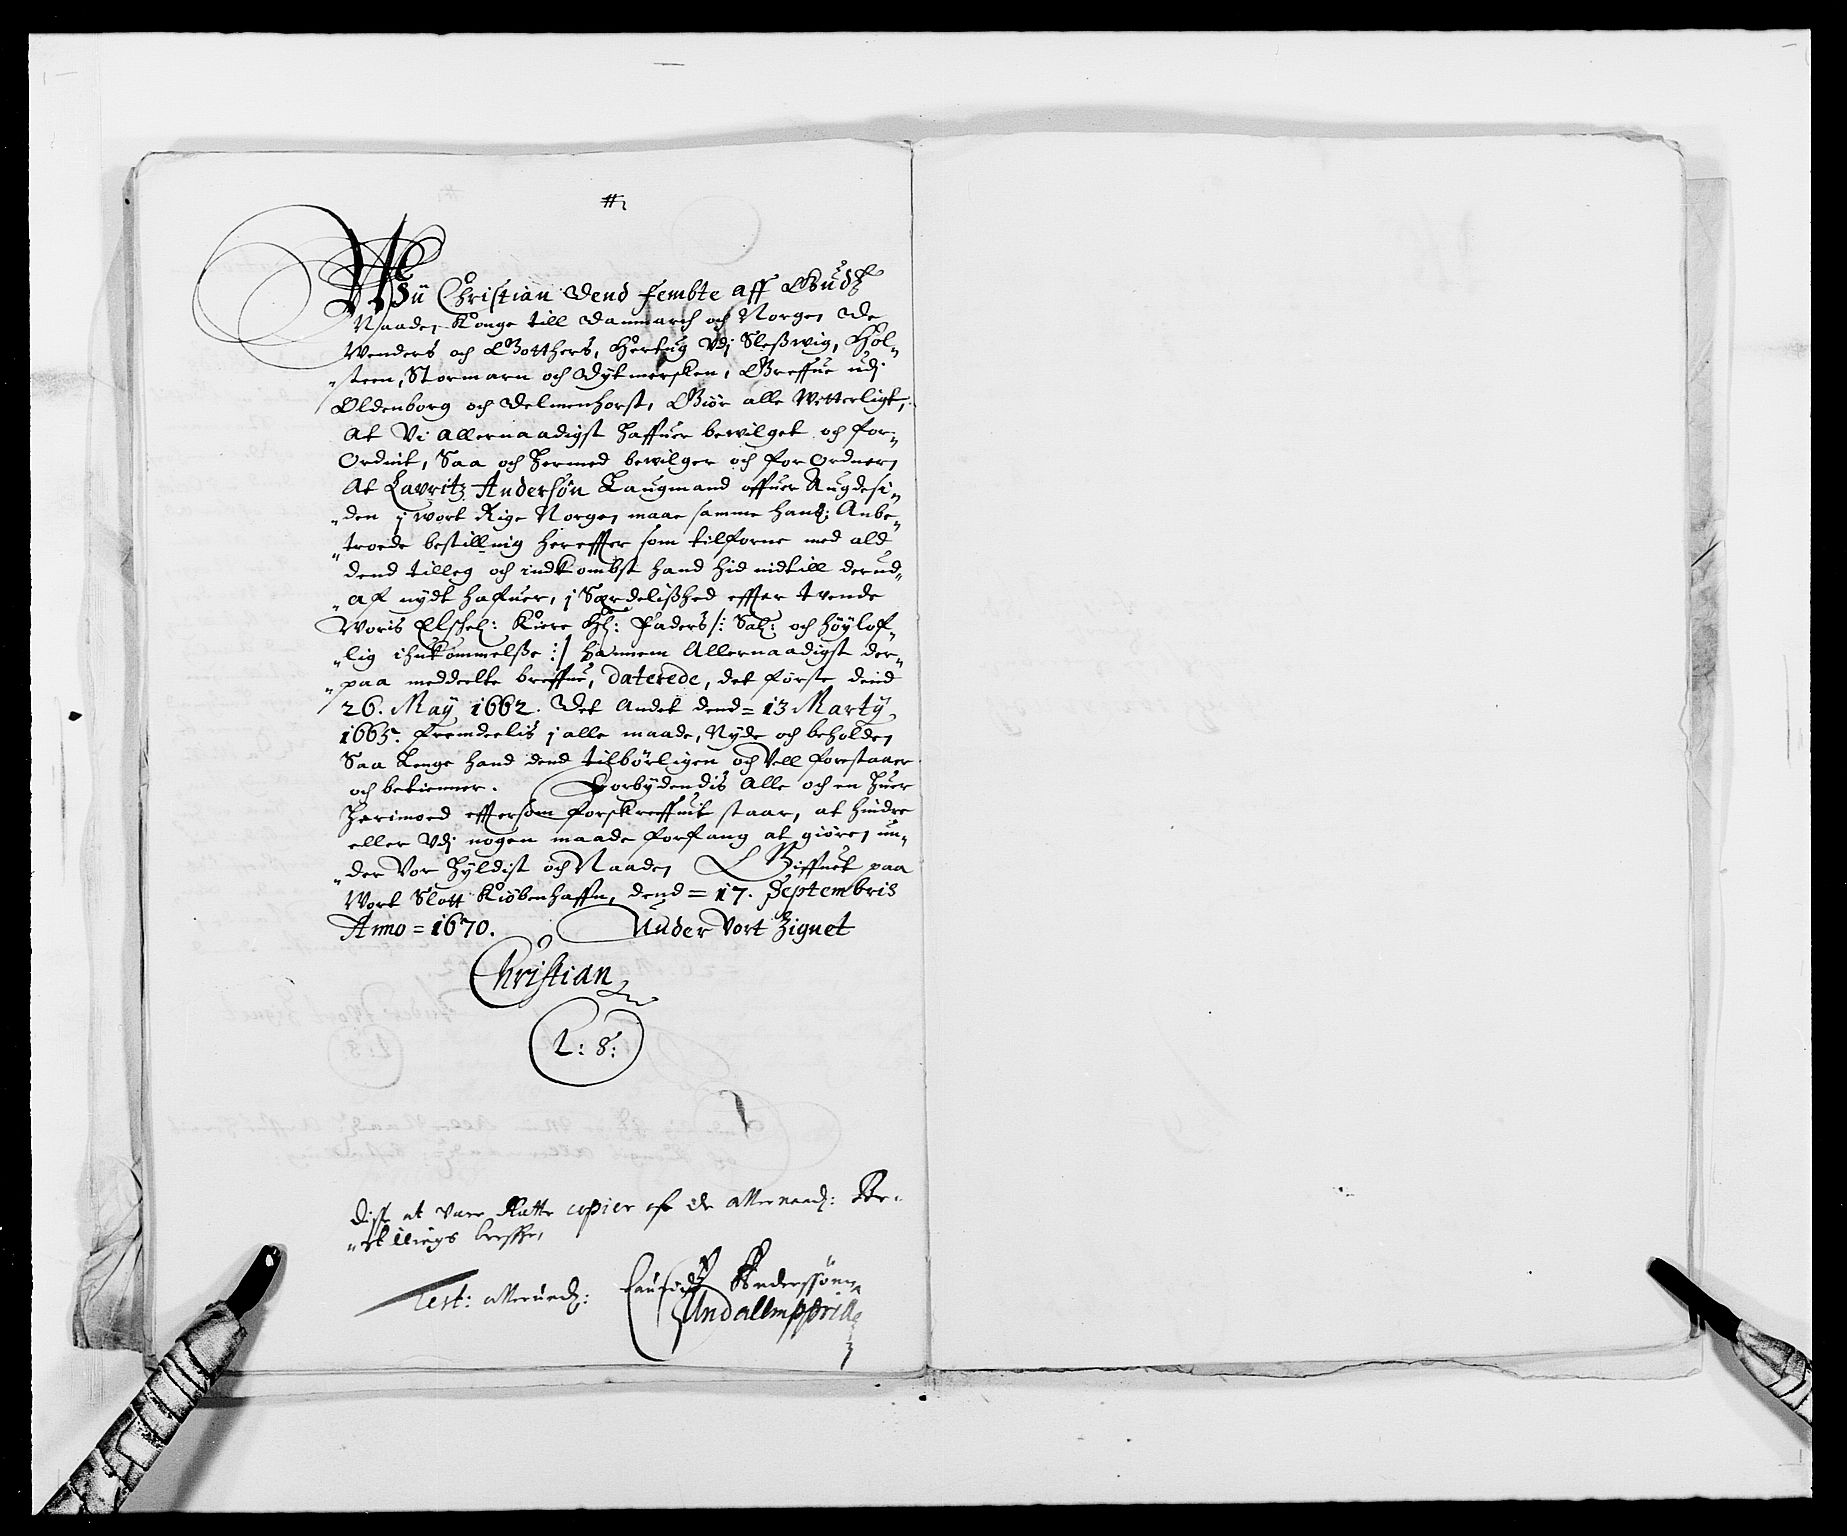 Wii Christian dend fembte aff Gudz
Naade, Konge till Danmarch och Norge, de
Wenders och Gotthers, Hertug Vdj Sleßwig, Hol„
„steen, Stormarn och Dytmersken, Greffue udj
Oldenborg och Delmenhorst, Giør alle Witterligt,
At Vi Allernaadigst haffuer bewilget och for„
Ordnit, Saa och hermed bewilger och for Ordner,
At Lavritz Andersøn Laugmand offuer Augdesi„
„den j wort Rige Norge, maae samme hans Anbe„
„troede bestillnig hereffter som tilforne med ald
dend tilleg och indkombst hand hid indtill derud„
„af nydt hafuer, j Særdelished effter tvende
Woris Elschel: Kiere Hr: Faders /: Sal: och Høylof„
„lig ihukommelße :/ hannem Allernaadigst der„
„paa meddeelte breffue, daterede, det første dend
26. Maÿ 1662. Det Andet dend = 13 Martÿ
1665. fremdeelis j alle maade, Nyde och beholde,
Saa Lenge hand dend tilbørligen och Vell forestaaer
och betienner. Forbydendis Alle och en huer
herimod efftersom forskreffuit staar, at hindre
eller Vdj nogen maade forfang at giøre, un„
„der Vor hyldist och Naade, Giffuet paa
Wort Slott Kiøbenhaffn, dend = 17. Septembris
Anno = 1670. Under Vort Zignet
Christian
L: S:
Diße at Være Rætte copier af de allernaad: Be„
„stillings breffe,
Test: allerund: Lauridz Anderssøn